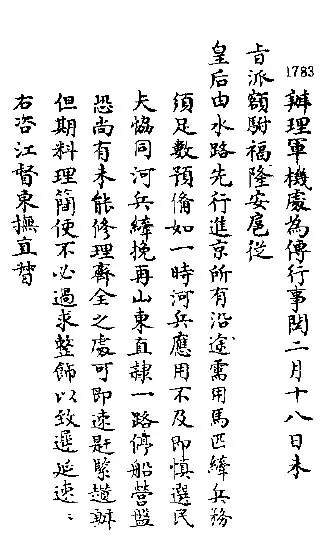 1783
辦理軍機處為傳行事閏二月十八日奉
旨派額駙福隆安扈從
皇后由水路先行進京所有沿途需用馬匹縴兵務
須足數預備如一時河兵應用不及即慎選民
夫協同河兵縴挽再山東直隸一路停船營盤
恐尚有未能修理齊全之處可即速赶緊趲辦
但期料理簡便不必過求整飾以致遲延速:
右咨江督東撫直督